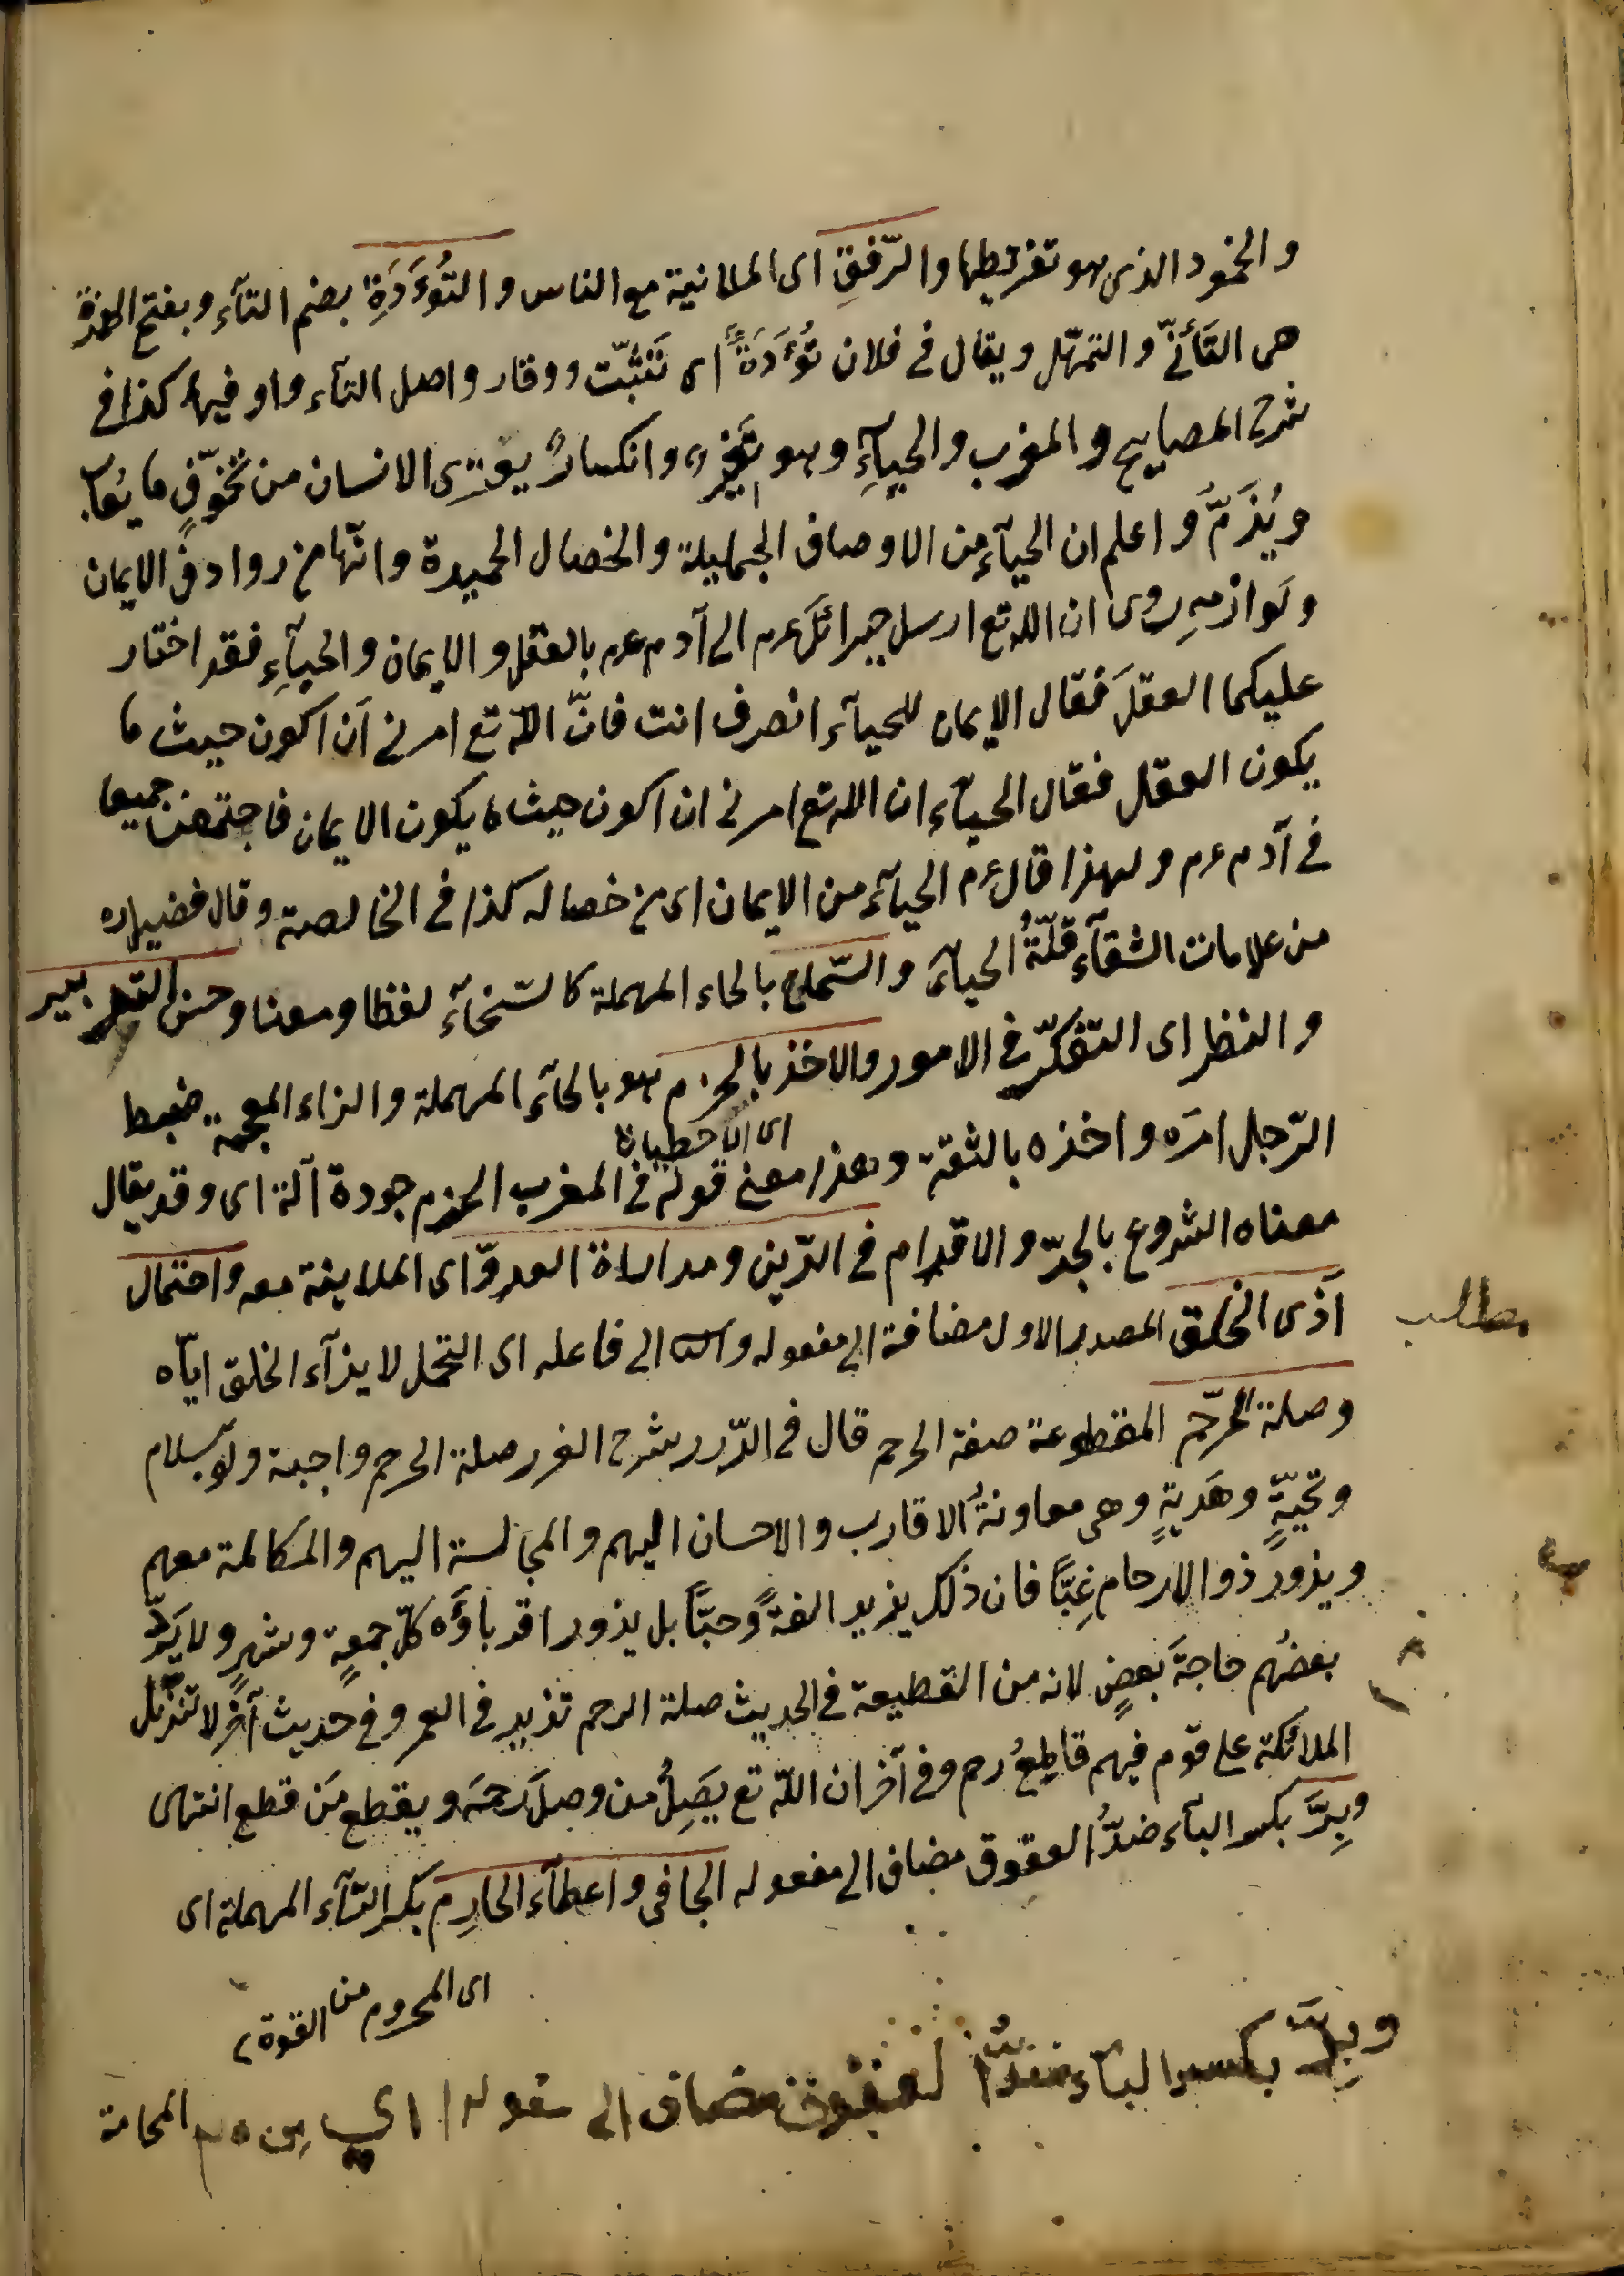 والخمود الذى هو تفريطها والرّفقِ اى الملانية مع الناس والتُوءَدَةِ بضم التآء وبفتح الهمزة
هى التَأنّى والتمهّل ويقال فى فلان تُوءَدَةٌ اى تَثبّت ووقار واصل التآء واو فيها كذا فى
شرح المصابيح والمغرب والحيآءِ وهو تغيّر وانكسارٌ يعترى الانسان من تخوّفِ ما يُعاب
ويُذَمَّ واعلم ان الحيآء من الاوصاف الجميلة والخصال الحميدة وانها من روادف الايمان
ولوازمهِ روى ان الله تع ارسل جبرائلَ عم الى آدم عم بالعقل والايمان والحيآءِ فقد اختار
عليكما العقلَ فقال الايمان للحيآء انصرف انت فانّ اللّه تع امرنى اَن اكون حيث ما
يكون العقل فقال الحيآء ان الله تع امرنى ان اكون حيث ما يكون الايمان فاجتمعن جميعا
فى آدم عم ولهذا قال عم الحيآء من الايمان اى من خصاله كذا فى الخالصة وقال فضيل
من علامات الشقآءِ قلّةُ الحيآء والسّماح بالحاء المهملة كالسّخآءِ لفظا ومعنا وحسن التدبير
والنظر اى التفكّر فى الامور والاخذ بالحزم هو بالحآء المهملة والزاء المعجمة ضبط
الرّجل امرَه واخذه بالثقة وهذا معنى قوله فى المغرب الحزم جودة آلة اى وقد يقال
معناه الشروع بالجدّ والاقدام فى الدّين ومداراة العدوّ اى الملاينة معه واحتمال
اَذَى الخلق المصدر الاول مضافة الى مفعوله والثا الى فاعله اى التحمل لايذآء الخلق ايّاه
مطلب
وصلة الرّحم المقطوعة صفة الرحم قال فى الدّرر شرح الغرر صلة الرحم واجبة ولو بسلام
وتحيّةٍ وهَديةٍ وهى معاونةُ الاقارب والاحسان اليهم والمجالسة اليهم والمكالمة معهم
ويزورُ ذوا الارحام غِبًّا فان ذلك يزيد الفةً وحبًّا بل يزور اقرباؤَه كلّ جمعةٍ وشهرٍ ولا يَردّ
بعضُهم حاجةَ بعضٍ لانه من القطيعة فى الحديث صلة الرحم تزيد فى العمر وفى حديث آخر لا تنزّل
الملائكة على قوم فيهم قاطِعُ رحم وفى آخر ان اللّه تع يَصِلُ من وصل رحمَه ويقطع مَن قطع انتهى
وبِرَّ بكسر البآء ضدُّ العقوق مضاف الى مفعوله الجافى واعطآء الحارِم بكسر الرآء المهملة اى
اى المحروم من القوة
وبِرَّ بكسر البآء ضدُّ العقوق مضاف الى